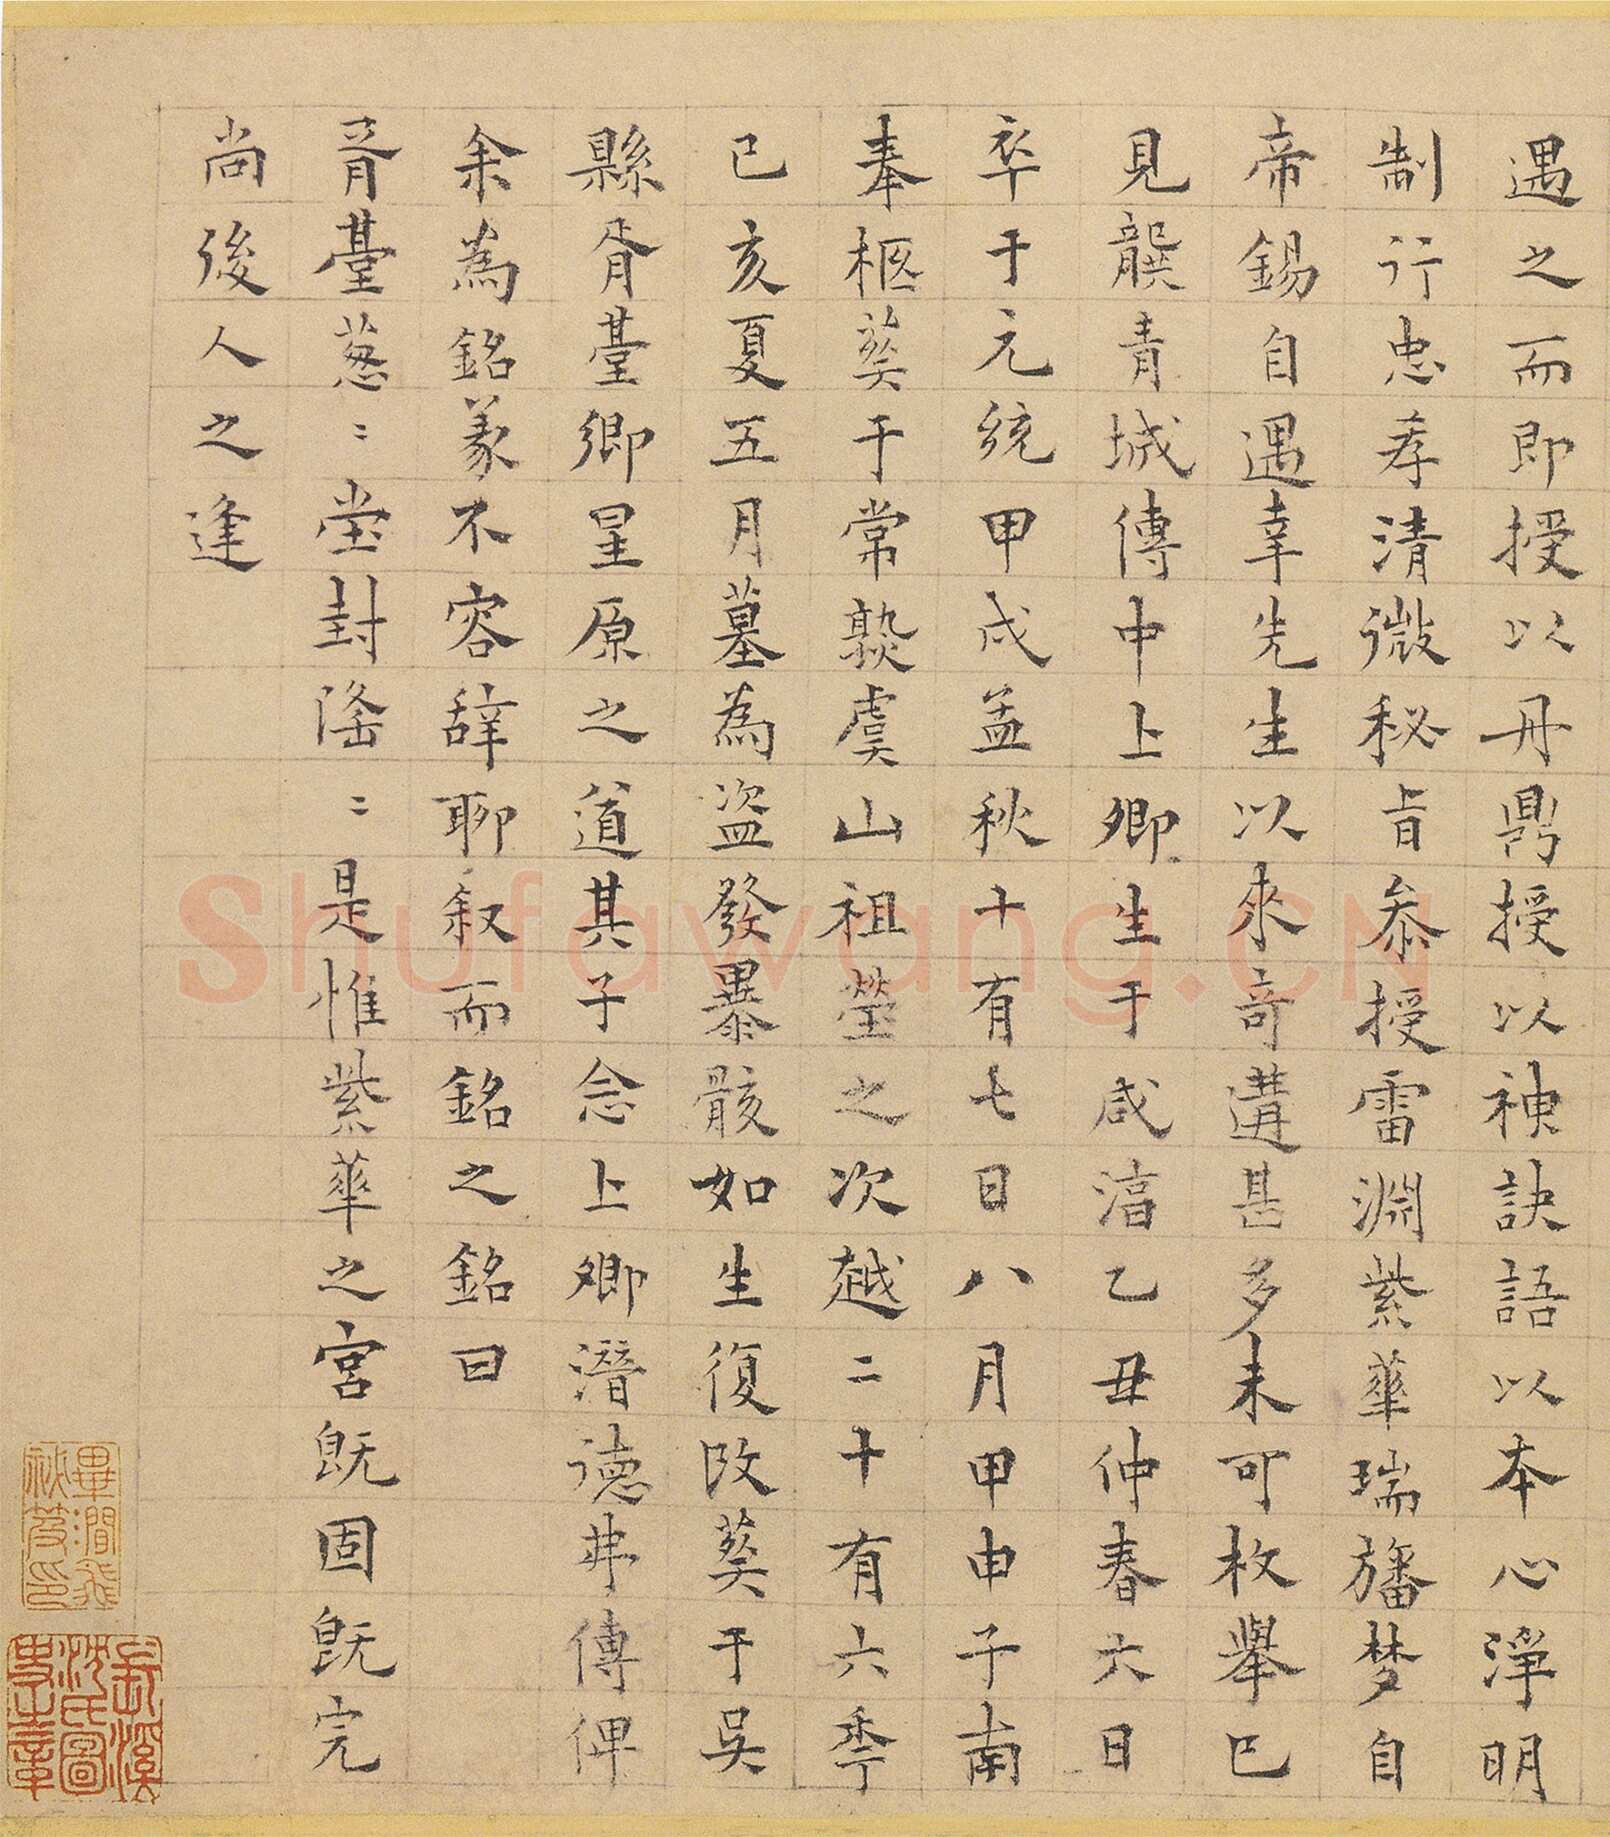 遇之而即授以丹鼎授以神訣語以本心淨明
制行忠孝清微秘旨叅授雷淵紫華瑞旛梦自
帝錫自遇幸先生以來奇遘甚多未可枚舉已
見龔青城傳中上卿生于咸淳乙丑仲春六日
卒于元統甲戌孟秋十有七日八月甲申子南
奉柩葬于常熟虞山祖塋之次越二十有六季
已亥夏五月墓為盜發暴骸如生復改葬于吳
縣胥臺鄉星原之道其子念上卿潛德弗傳俾
余為銘義不容辭聊叙而銘之銘曰
胥臺蔥〻堂封隆〻是惟紫華之宮既固既完
尚後人之逢
畢瀾飛秘笈印
Shufawang.CN